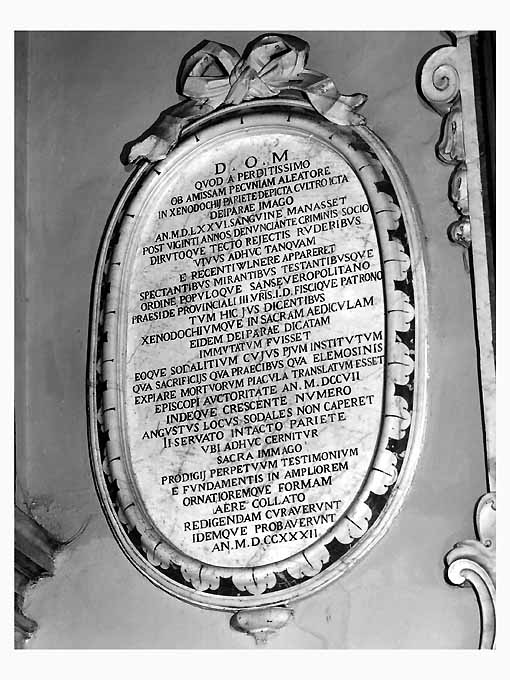 D. O. M
QVOD A PERDITISSIMO
OB AMISSAM PECVNIAM ALEATORE
IN XENODOCHIJ PARIETE DEPICTA CVLTRO ICTA
DEIPARAE IMAGO
AN. M.D.LXXVI. SANGVINE MANASSET
POST VIGINTI ANNOS, DENVNCIANTE CRIMINIS SOCIO
DIRVTOQVE TECTO REJECTIS RVDERIBVS
VIVVS ADHVC TANQVAM
E RECENTI VVLNERE APPARERET
SPECTANTIBVS MIRANTIBVS TESTANTIBVSQVE
ORDINE POPVLOQVE SANSEVEROPOLITANO
PRAESIDE PROVINCIALI IIVRIS. I.D. FISCIQVE PATRONO
TVM HIC JVS DICENTIBVS
XENODOCHIVMQVE IN SACRAM AEDICVLAM
EIDEM DEIPARAE DICATAM
IMMVTATVM FVISSET
EOQVE SODALITIVM CVJVS PJVM INSTITVTVM
QVA SACRIFICIJS QVA PRAECIBVS QVA ELEMOSINIS
EXPIARE MORTVORVM PIACVLA TRANSLATVM ESSET
EPISCOPI AVCTORITATE AN. M.DCCVII
INDEQVE CRESCENTE NVMERO
ANGVSTVS LOCVS SODALES NON CAPERET
II SERVATO INTACTO PARIETE
VBI ADHVC CERNITVR
SACRA IMMAGO
PRODIGIJ PERPETVVM TESTIMONIVM
E FVNDAMENTIS IN AMPLIOREM
ORNATIOREMQVE FORMAM
AERE COLLATO
REDIGENDAM CVRAVERVNT
IDEMQVE PROBAVERVNT
AN. M.D.CCXXXII